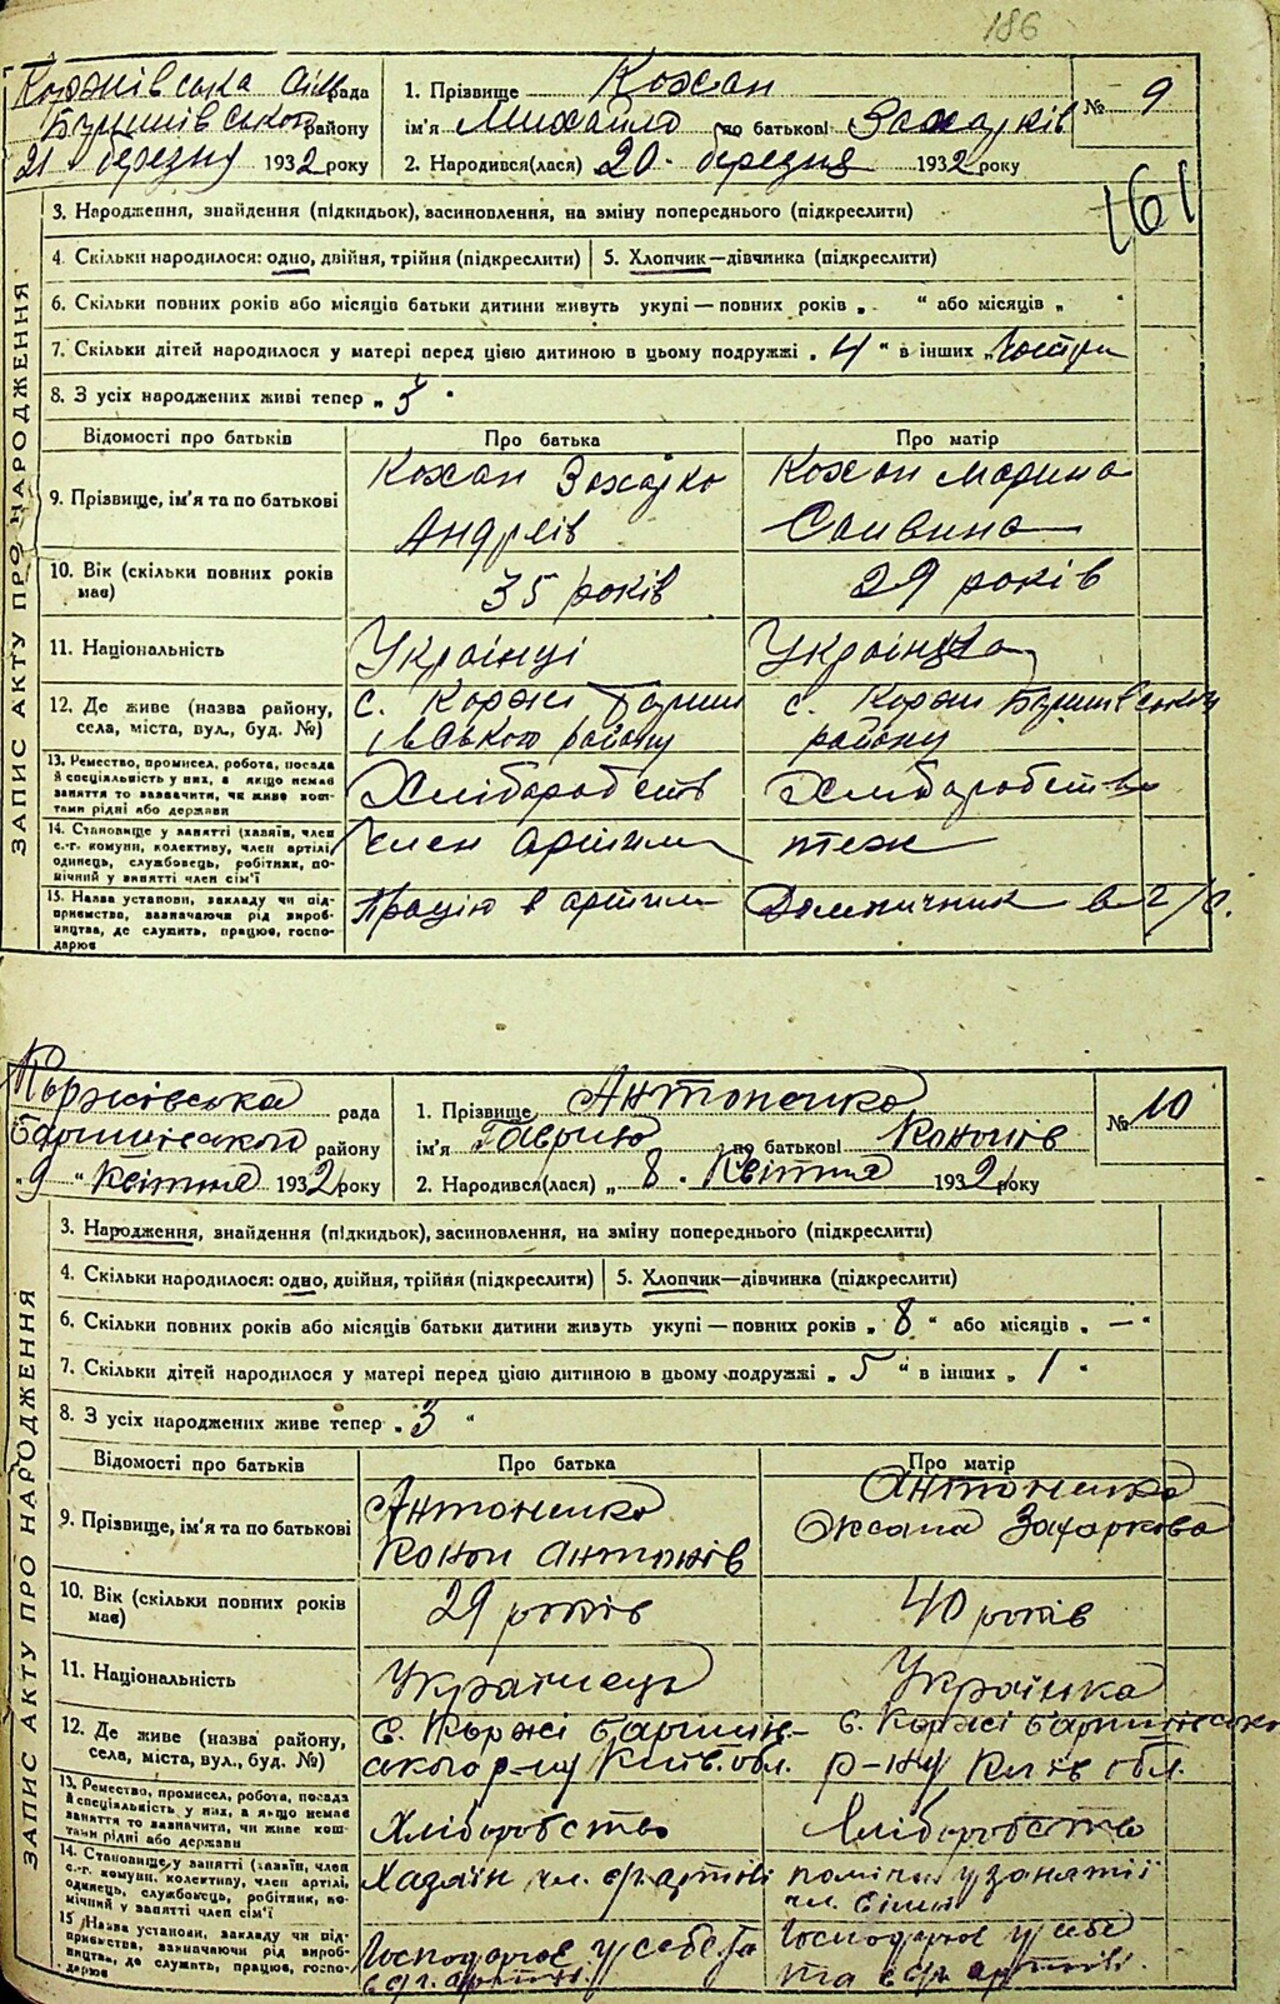 186
Коржівська сільрада
Баришівського району
21 березня 1932 року
1. Прізвище Кохан
ім'я Михайло по батькові Захарків
2. Народився(лася) 20 березня 1932 року
№ 9
161
ЗАПИС АКТУ ПРО НАРОДЖЕННЯ
3. Народження, знайдення (підкидьок), засиновлення, на зміну попереднього (підкреслити)
4. Скільки народилося: одно, двійня, трійня (підкреслити) 5. Хлопчик—дівчинка (підкреслити)
6. Скільки повних років або місяців батьки дитини живуть укупі — повних років „ “ або місяців „ “
7. Скільки дітей народилося у матері перед цією дитиною в цьому подружжі „ 4 “ в інших „
8. З усіх народжених живі тепер „ 3 “
Відомості про батьків Про батька Про матір
9. Прізвище, ім'я та по батькові
Кохан Захарко
Андріїв
Кохан Марина
Савина
10. Вік (скільки повних років має)
35 років
29 років
11. Національність
Українці
Українка
12. Де живе (назва району,
села, міста, вул., буд. №)
с. Коржі Бариш
івського району
с. Коржи Баришівського
району
13. Ремество, промисел, робота, посада
й спеціальність у них, а якщо немає
заняття то зазначити, чи живе кош-
тами рідні або держави
Хліборобств
Хліборобство
14. Становище у занятті (хазяїн, член
с.-г. комуни, колективу, член артілі,
одинець, службовець, робітник, по-
мічний у занятті член сім'ї
член артили
теж
15. Назва установи, закладу чи під-
приємства, зазначаючи рід вироб-
ництва, де служить, працює, госпо-
дарює
Працює в артили
в г/с.
Коржівська рада
Баришівського району
„9“ Квітня 1932 року
1. Прізвище Антоненко
ім'я Гаврило по батькові Кононів
2. Народився(лася) „ 8 “ Квітня 1932 року
№ 10
ЗАПИС АКТУ ПРО НАРОДЖЕННЯ
3. Народження, знайдення (підкидьок), засиновлення, на зміну попереднього (підкреслити)
4. Скільки народилося: одно, двійня, трійня (підкреслити) 5. Хлопчик—дівчинка (підкреслити)
6. Скільки повних років або місяців батьки дитини живуть укупі — повних років „ 8 “ або місяців „ — “
7. Скільки дітей народилося у матері перед цією дитиною в цьому подружжі „ 5 “ в інших „ 1 “
8. З усіх народжених живе тепер „ 3 “
Відомості про батьків Про батька Про матір
9. Прізвище, ім'я та по батькові
Антоненко
Конон Антонів
Антоненко
Оксана Захаркова
10. Вік (скільки повних років має)
29 років
40 років
11. Національність
Українець
Українка
12. Де живе (назва району,
села, міста, вул., буд. №)
с. Коржі Баришів-
ського р-ну Київ. обл.
с. Коржі Баришівсько
р-ну Київ обл.
13. Ремество, промисел, робота, посада
й спеціальність у них, а якщо немає
заняття то зазначити, чи живе кош-
тами рідні або держави
Хліборобство
Хліборобство
14. Становище у занятті (хазяїн, член
с.-г. комуни, колективу, член артілі,
одинець, службовець, робітник, по-
мічний у занятті член сім'ї
Хазяїн чл. с/г. артілі
помічн. у занятті
чл. сімї
15 Назва установи, закладу чи під-
приємства, зазначаючи рід вироб-
ництва, де служить, працює, госпо-
дарює
Господарює у себе та
в с/г. артілі.
Господарює у себе
та в с/г. артілі.